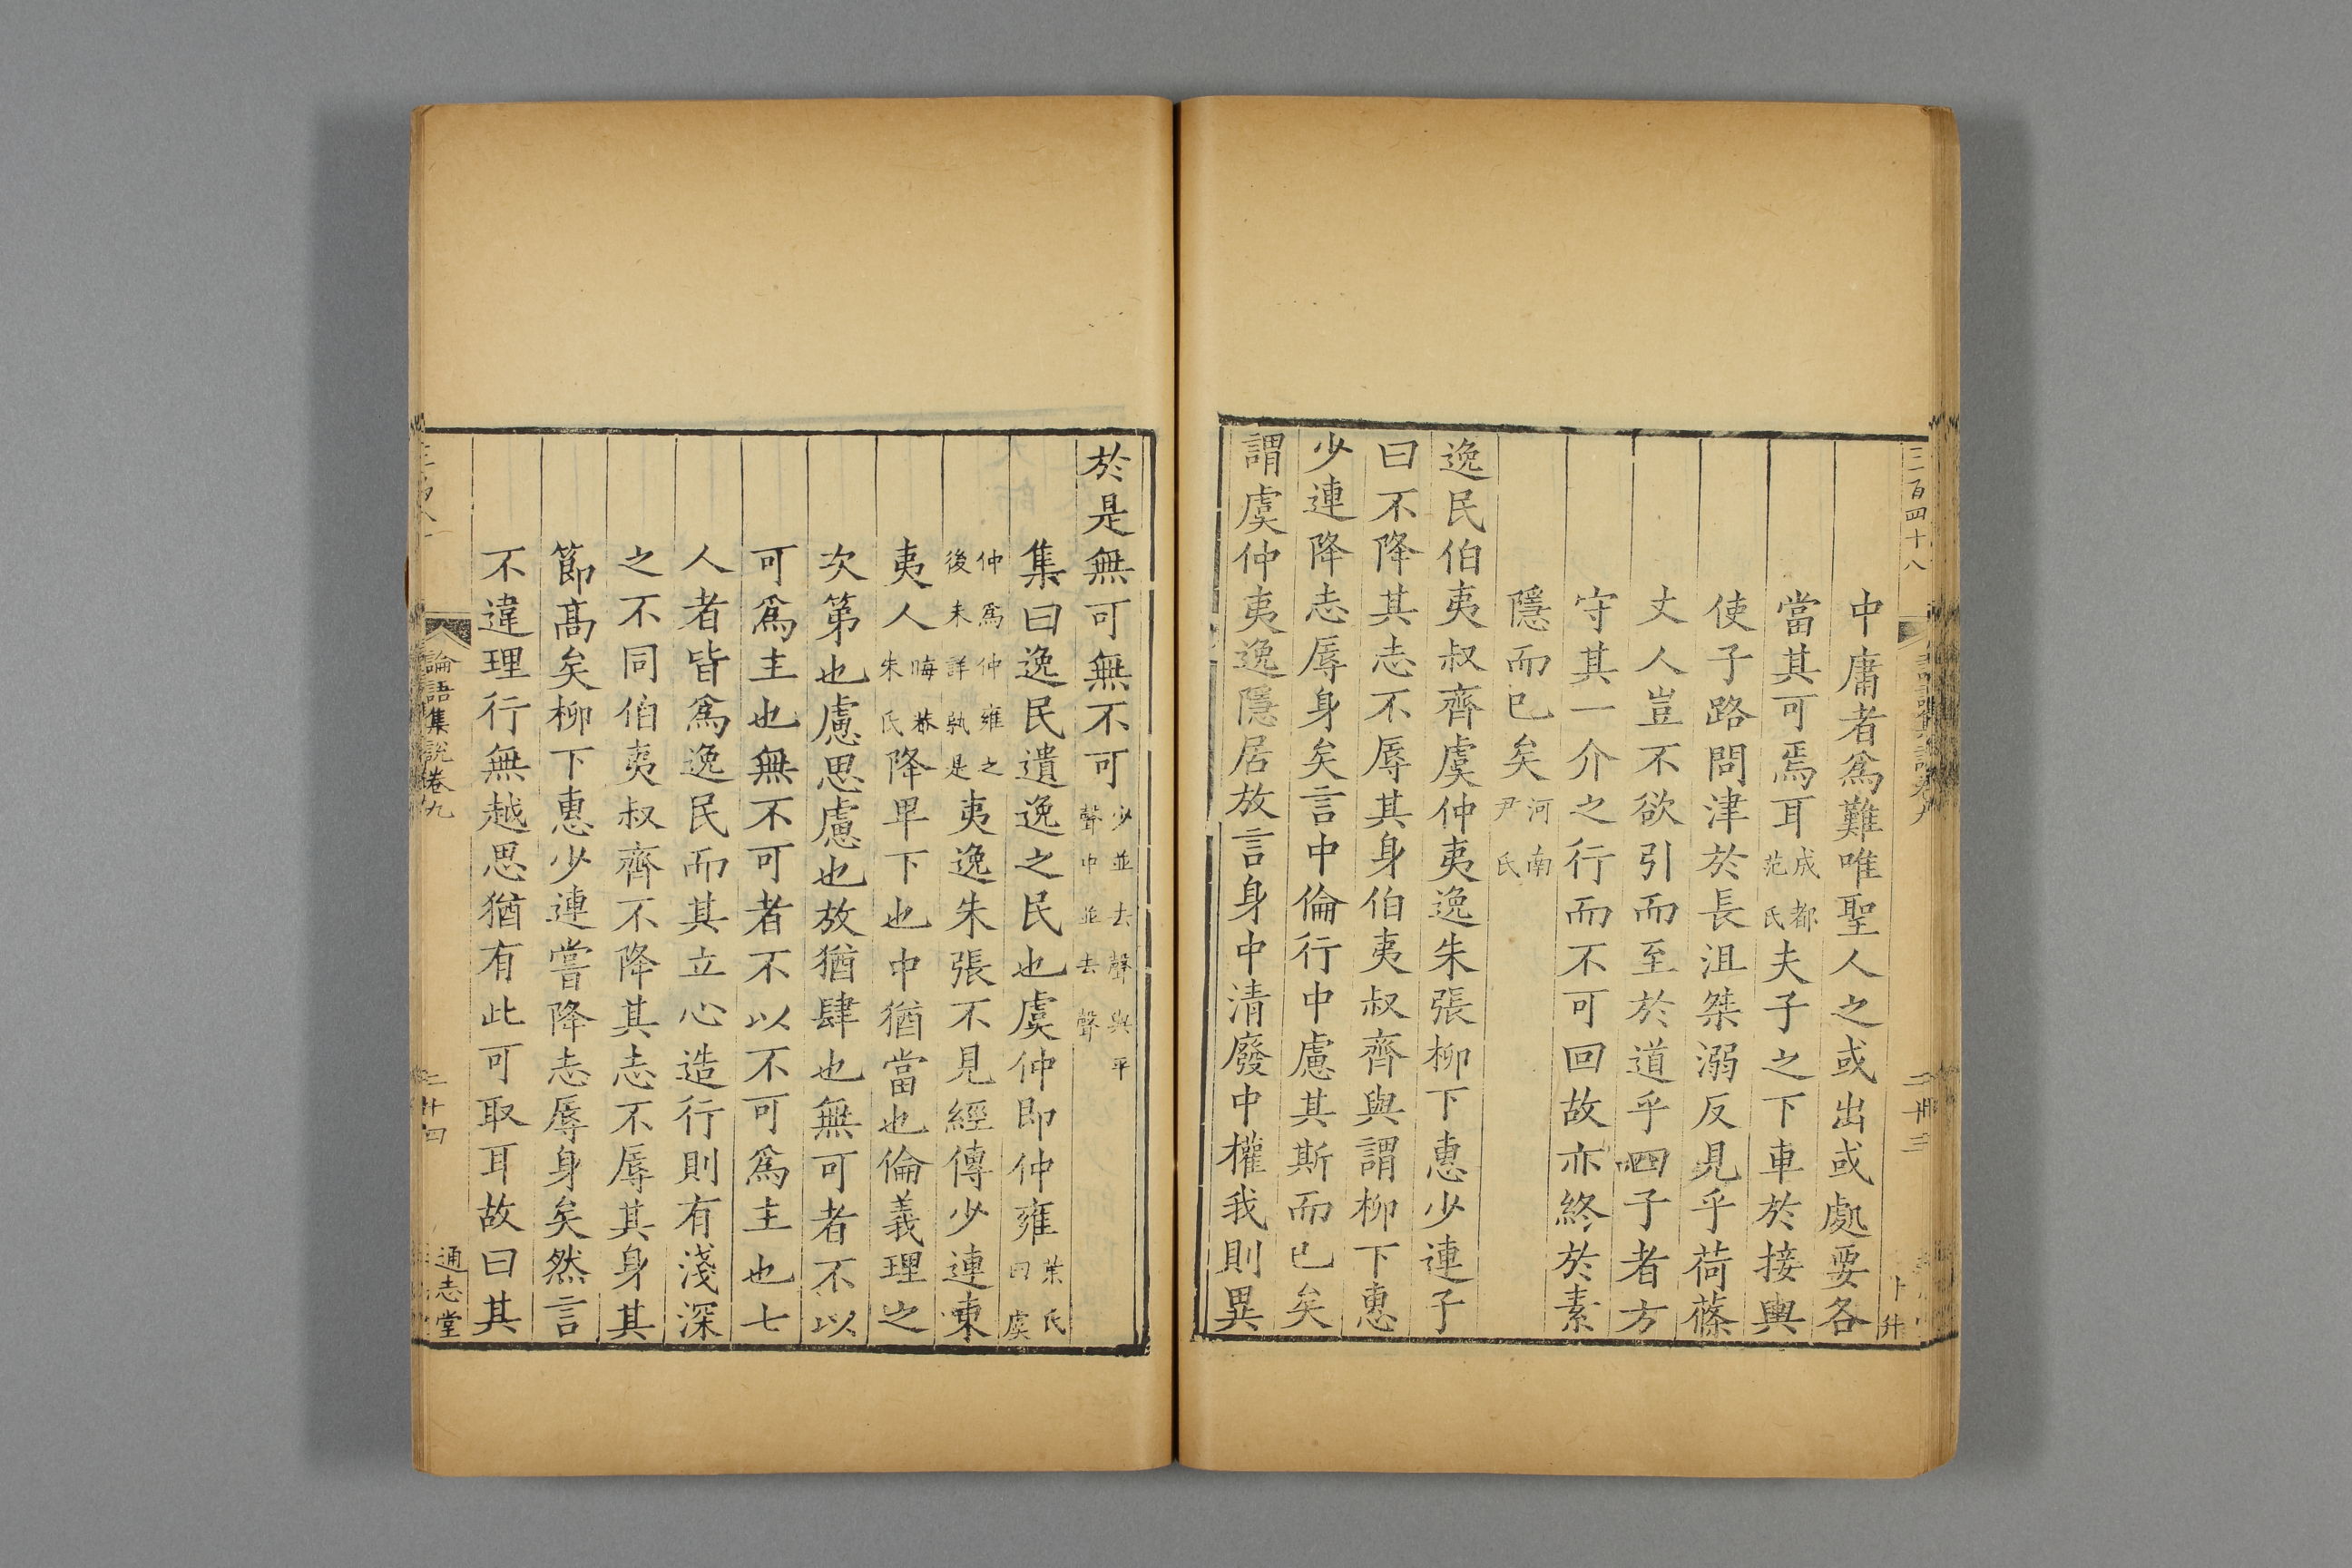 三百四十八
中庸者爲難唯聖人之或出或處要各
當其可焉耳成都范氏夫子之下車於接輿
使子路問津於長沮桀溺反見乎荷蓧
丈人豈不欲引而至於道乎四子者方
守其一介之行而不可回故亦終於素
隱而已矣河南尹氏
逸民伯夷叔齊虞仲夷逸朱張柳下惠少連子
曰不降其志不辱其身伯夷叔齊與謂柳下惠
少連降志辱身矣言中倫行中慮其斯而已矣
謂虞仲夷逸隱居放言身中清廢中權我則異
於是無可無不可少並去聲與平聲中並去聲
集曰逸民遺逸之民也虞仲即仲雍葉氏曰虞
仲爲仲雍之後未詳孰是夷逸朱張不見經傳少連東
夷人晦菴朱氏降卑下也中猶當也倫義理之
次第也慮思慮也放猶肆也無可者不以
可爲主也無不可者不以不可爲主也七
人者皆爲逸民而其立心造行則有淺深
之不同伯夷叔齊不降其志不辱其身其
節高矣柳下惠少連嘗降志辱身矣然言
不違理行無越思猶有此可取耳故曰其
論語集說卷九
二十四
通志堂